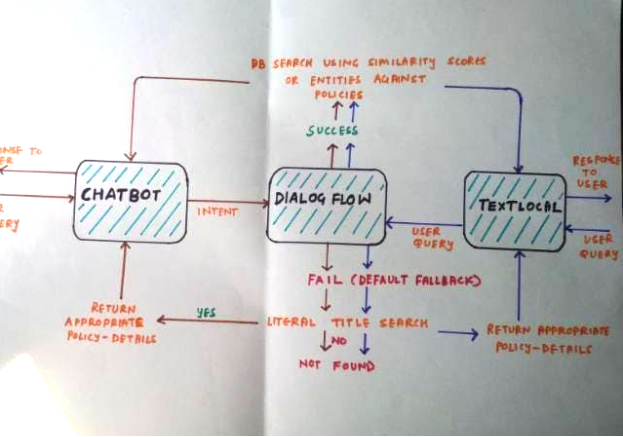 DB SEARCH USING SIMILARITY SCORES
OR ENTITIES AGAINST
POLICIES
SUCCESS
RESPONSE
TO
USER
CHATBOT
INTENT
DIALOG FLOW
USER
QUERY
TEXTLOCAL
USER
QUERY
FAIL (DEFAULT FALLBACK)
RETURN
APPROPRIATE
POLICY-DETAILS
YES
LITERAL TITLE SEARCH
RETURN APPROPRIATE
POLICY-DETAILS
NO
NOT FOUND